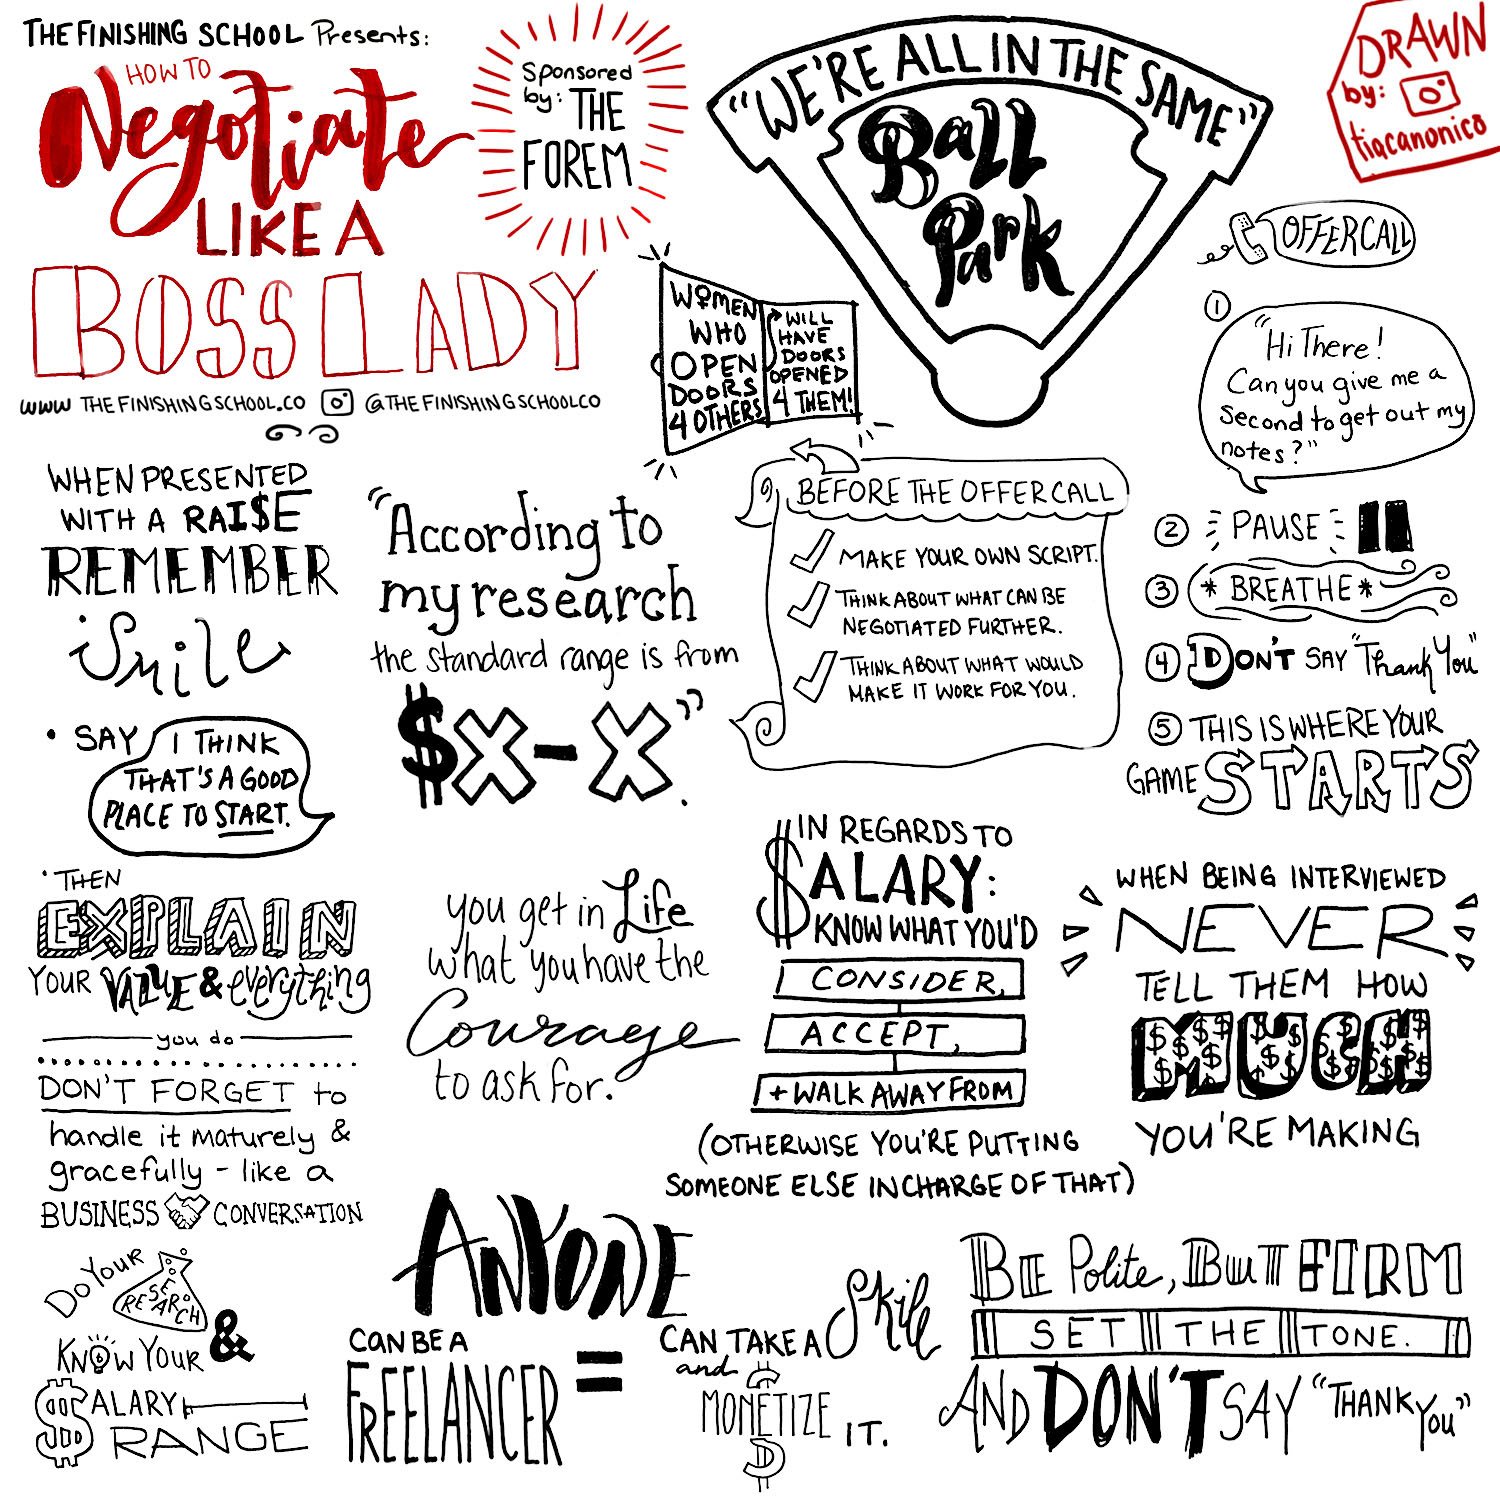 THE FINISHING SCHOOL Presents:
HOW TO
Negotiate
LIKE A
BOSS LADY
WWW THEFINISHINGSCHOOL.CO @THEFINISHINGSCHOOLCO
Sponsored
by: THE
FOREM
"WE'RE ALL IN THE SAME"
Ball
Park
DRAWN
by:
tiacanonico
WOMEN
WHO
OPEN
DOORS
4 OTHERS
WILL
HAVE
DOORS
OPENED
4 THEM!
OFFER CALL
1
"Hi There!
Can you give me a
second to get out my
notes?"
2 PAUSE
3 *BREATHE*
4 DON'T SAY "Thank You"
5 THIS IS WHERE YOUR
GAME STARTS
WHEN PRESENTED
WITH A RAI$E
REMEMBER
• Smile
• SAY I THINK
THAT'S A GOOD
PLACE TO START.
• THEN
EXPLAIN
YOUR VALUE & everything
you do
DON'T FORGET to
handle it maturely &
gracefully - like a
BUSINESS CONVERSATION
"According to
my research
the standard range is from
$X-X".
BEFORE THE OFFER CALL
✓ MAKE YOUR OWN SCRIPT.
✓ THINK ABOUT WHAT CAN BE
NEGOTIATED FURTHER.
✓ THINK ABOUT WHAT WOULD
MAKE IT WORK FOR YOU.
you get in Life
what you have the
Courage
to ask for.
IN REGARDS TO
$ALARY:
KNOW WHAT YOU'D
CONSIDER,
ACCEPT,
+ WALK AWAY FROM
(OTHERWISE YOU'RE PUTTING
SOMEONE ELSE IN CHARGE OF THAT)
WHEN BEING INTERVIEWED
NEVER
TELL THEM HOW
MUCH
YOU'RE MAKING
DO YOUR
RESEARCH &
KNOW YOUR
$ALARY
RANGE
ANYONE
CAN BE A
FREELANCER =
CAN TAKE A Skill
and
MONETIZE IT.
BE Polite, BUT FIRM
SET THE TONE.
AND DON'T SAY "THANK YOU"